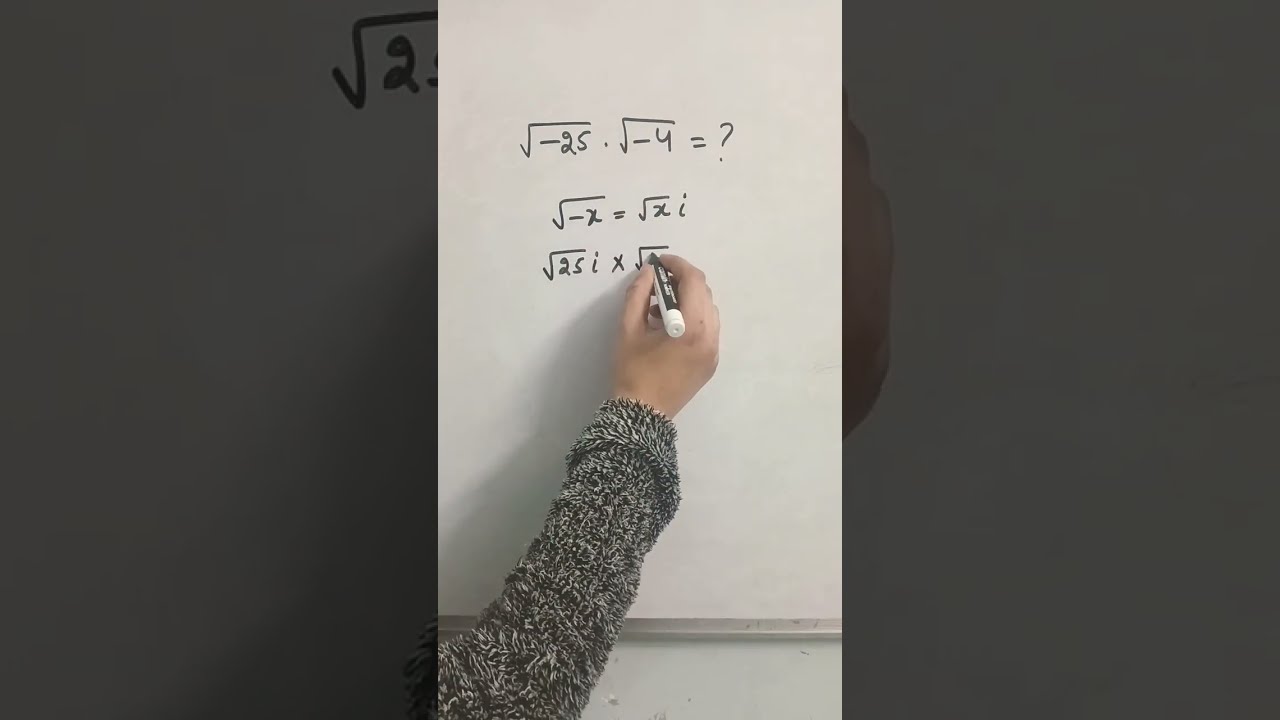 √-25 . √-4 = ?
√-x = √x i
√25 i × √